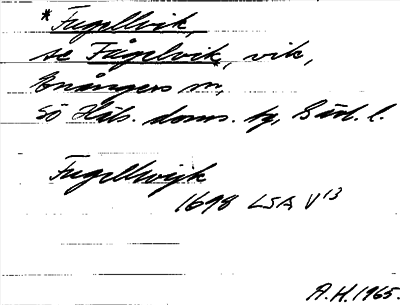 * Fugellvik,
se Fågelvik, vik,
Enångers sn,
Sö Häls. doms. tg, Gävl. l.
Fugellwijk
1698 LSA V¹³
A.H. 1965.